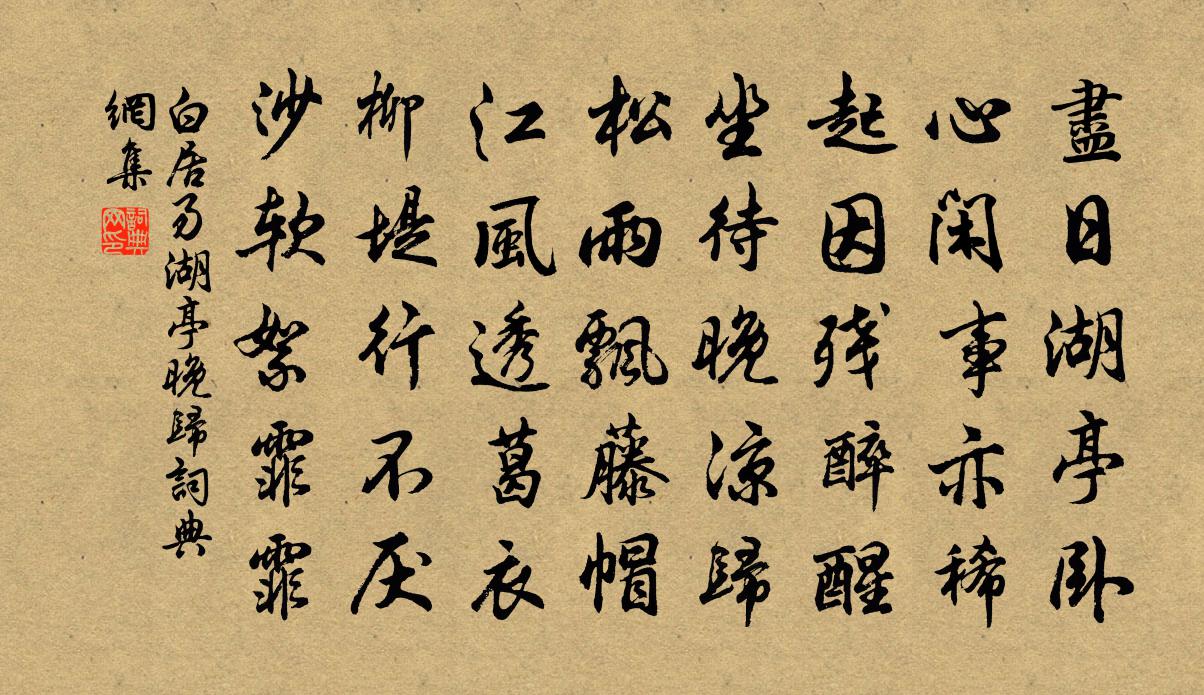 盡日湖亭卧
心閑事亦稀
起因残醉醒
坐待晚凉歸
松雨飄藤帽
江風透葛衣
柳堤行不厌
沙软絮霏霏
白居易湖亭晚歸詞典
網集
詞典网印